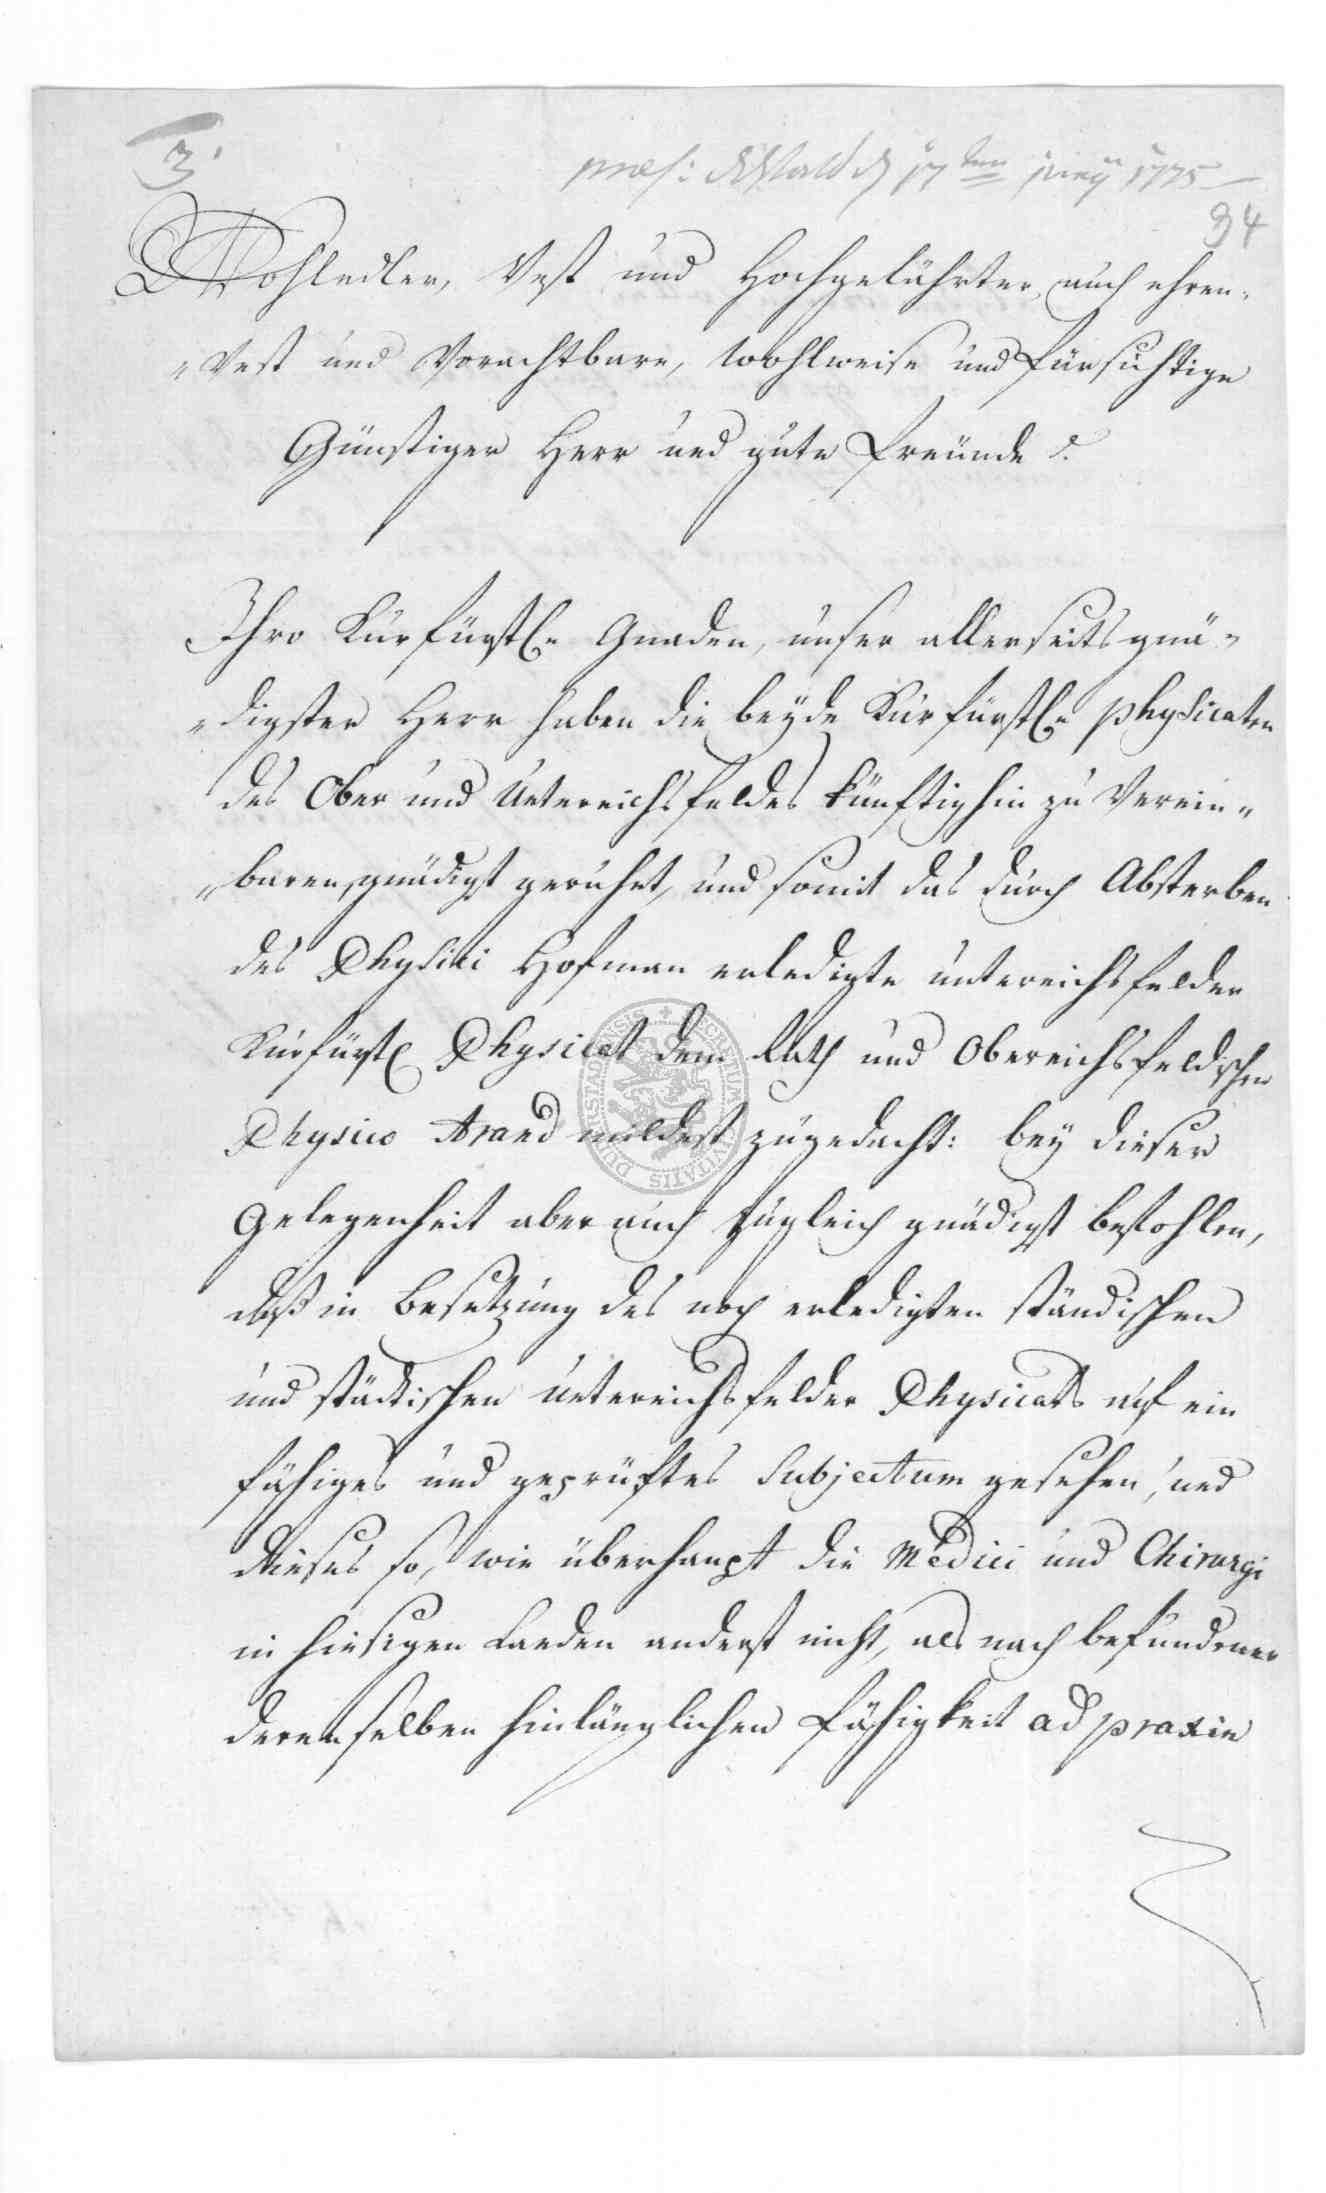 3.
præs: d 17ten Juny 1775
94
Wohledler, Vest und Hochgelährter, auch ehren-
-Vest und Vorachtbare, Wohlweise und fürsichtige
Günstiger Herr und gute Freünde
Ihro Kurfürstl. Gnaden, unser allerseits gnä-
-digster Herr haben die beÿde Kurfürstl. Physicaten
des Ober und Untereichsfeldes künftighin zu Verein-
-baren, gnädigst geruhet, und somit das durch Absterben
des Physici Hofman erledigte untereichsfelder
Kurfürstl. Physicat dem Rath und Obereichsfeldischen
Physico Arand mildest zugedacht: beÿ dieser
Gelegenheit aber auch zugleich gnädigst befohlen,
daß in Besetzung des noch erledigten ständischen
und städtischen Untereichsfelder Physicats auf ein
fähiges und geprüftes Subjectum gesehen, und
dieses so, wie überhaupt die Medici und Chirurgi
in hiesigen Landen anderst nicht, als nach befundener
derenselben hinlänglichen Fähigkeit ad praxin